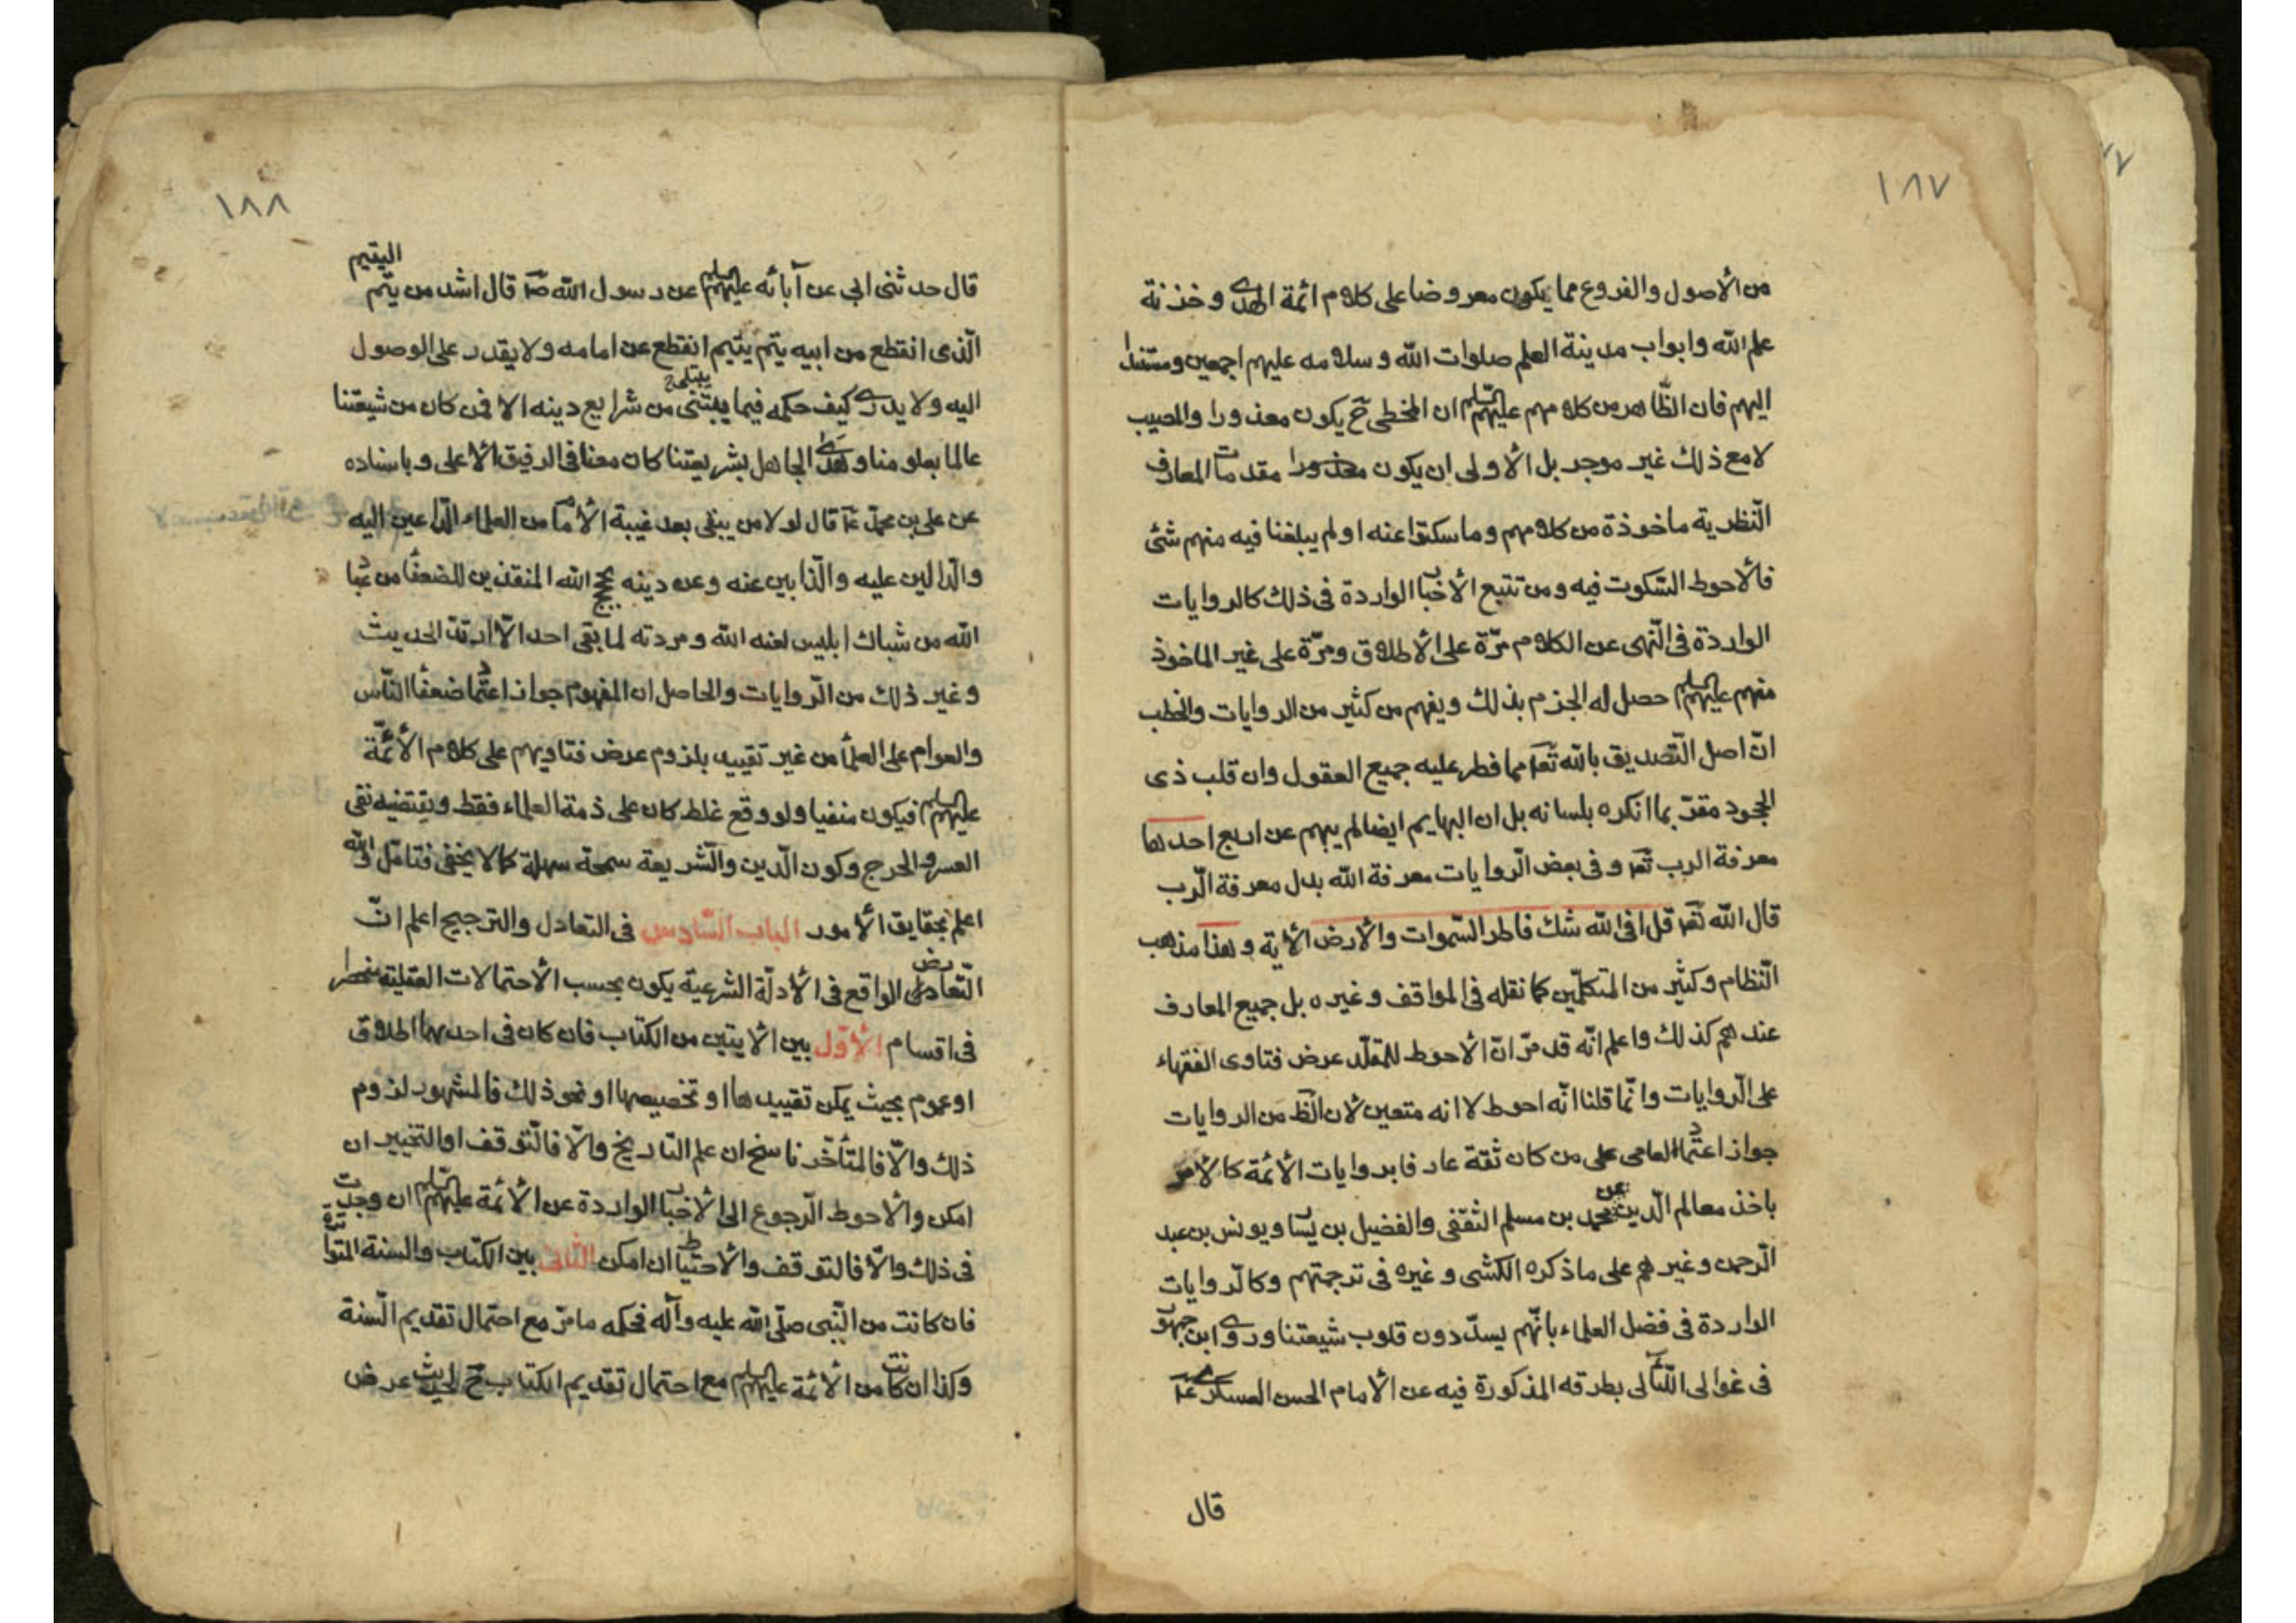 ١٨٧
من الأصول والفروع مما يكون معروضا على كلام ائمة الهدى وخزنة
علم الله وابواب مدينة العلم صلوات الله وسلامه عليهم اجمعين ومستندا
اليهم فان الظاهر من كلامهم عليهم السلم ان المخطى ح يكون معذورا والمصيب
لا مع ذلك غير موجر بل الأولى ان يكون مقدمات المعارف
النّظرية ماخوذة من كلامهم وما سكتوا عنه او لم يبلغنا فيه منهم شئ
فالأحوط السّكوت فيه ومن تتبع الأخبار الواردة فى ذلك كالروايات
الواردة فى النّهى عن الكلام مرّة على الأطلاق ومرّة على غير الماخوذ
منهم عليهم السلم حصل له الجزم بذلك ويفهم من كثير من الروايات والخطب
انّ اصل التّصديق بالله تعا مما فطر عليه جميع العقول وان قلب ذى
الجحود مقرّ بما انكره بلسانه بل ان البهايم ايضا لم يبهم عن اربع احدها
معرفة الرب تعا وفى بعض الرّوايات معرفة الله بدل معرفة الرّب
قال الله تعا قل افى الله شك فاطر السّموات والأرض الأية وهذا مذهب
النّظام وكثير من المتكلّمين كما نقله فى المواقف وغيره بل جميع المعارف
عندهم كذلك واعلم انّه قد مرّ انّ الأحوط للمقلّد عرض فتاوى الفقهاء
على الرّوايات وانّما قلنا انّه احوط لا انه متعين لأن الظ من الروايات
جواز اعتماد العامى على من كان ثقة عارفا بروايات الأئمة كالأمر
باخذ معالم الدين عن محمد بن مسلم الثقفى والفضيل بن يسار ويونس بن عبد
الرّحمن وغيرهم على ما ذكره الكشى وغيره فى ترجمتهم وكالرّوايات
الواردة فى فضل العلماء بانّهم يسدّدون قلوب شيعتنا وروى ابن جمهور
فى غوالى اللّئالى بطرقه المذكورة فيه عن الأمام الحسن العسكرى ع
قال
١٨٨
قال حدثنى ابى عن آبائه عليهم السلم عن رسول الله ص قال اشد من يتم اليتيم
الّذى انقطع من ابيه يتم يتيم انقطع عن امامه ولا يقدر على الوصول
اليه ولا يدرى كيف حكمه فيما يبتلى من شرايع دينه الا فمن كان من شيعتنا
عالما بعلومنا وهدى الجاهل بشريعتنا كان معنا فى الرفيق الأعلى وباسناده
عن على بن محمد ع قال لولا من يبقى بعد غيبة الأمام من العلماء الدّاعين اليه
والدّالين عليه والذّابين عنه وعن دينه بحجج الله المنقذين للضعفا من عباد
الله من شباك ابليس لعنه الله ومردته لما بقى احد الّا ارتدّ الحديث
وغير ذلك من الرّوايات والحاصل ان المفهوم جواز اعتماد ضعفا النّاس
والعوام على العلما من غير تقييد بلزوم عرض فتاويهم على كلام الأئمّة
عليهم السلم فيكون منفيا ولو وقع غلط كان على ذمة العلماء فقط ويقتضيه نفى
العسر والحرج وكون الدّين والشّريعة سمحة سهلة كما لا يخفى فتامّل والله
اعلم بحقايق الأمور الباب السّادس فى التعادل والترجيح اعلم انّ
التّعارض الواقع فى الأدلّة الشرعية يكون بحسب الأحتمالات العقلية منحصرا
فى اقسام الأوّل بين الأيتين من الكتاب فان كان فى احديهما اطلاق
او عموم بحيث يمكن تقييدها او تخصيصها او نحو ذلك فالمشهور لزوم
ذلك والّا فالمتأخّر ناسخ ان علم التاريخ والّا فالتوقف او التخيير ان
امكن والأحوط الرّجوع الى الأخبار الواردة عن الأئمة عليهم السلم ان وجدت
فى ذلك والّا فالتوقف والأحتياط ان امكن الثّانى بين الكتاب والسنة المتواترة
فان كانت من النّبى صلّى الله عليه وآله فحكمه ما مرّ مع احتمال تقديم السّنة
وكذا ان كانت من الأئمة عليهم السلم مع احتمال تقديم الكتاب ح لحديث عرض